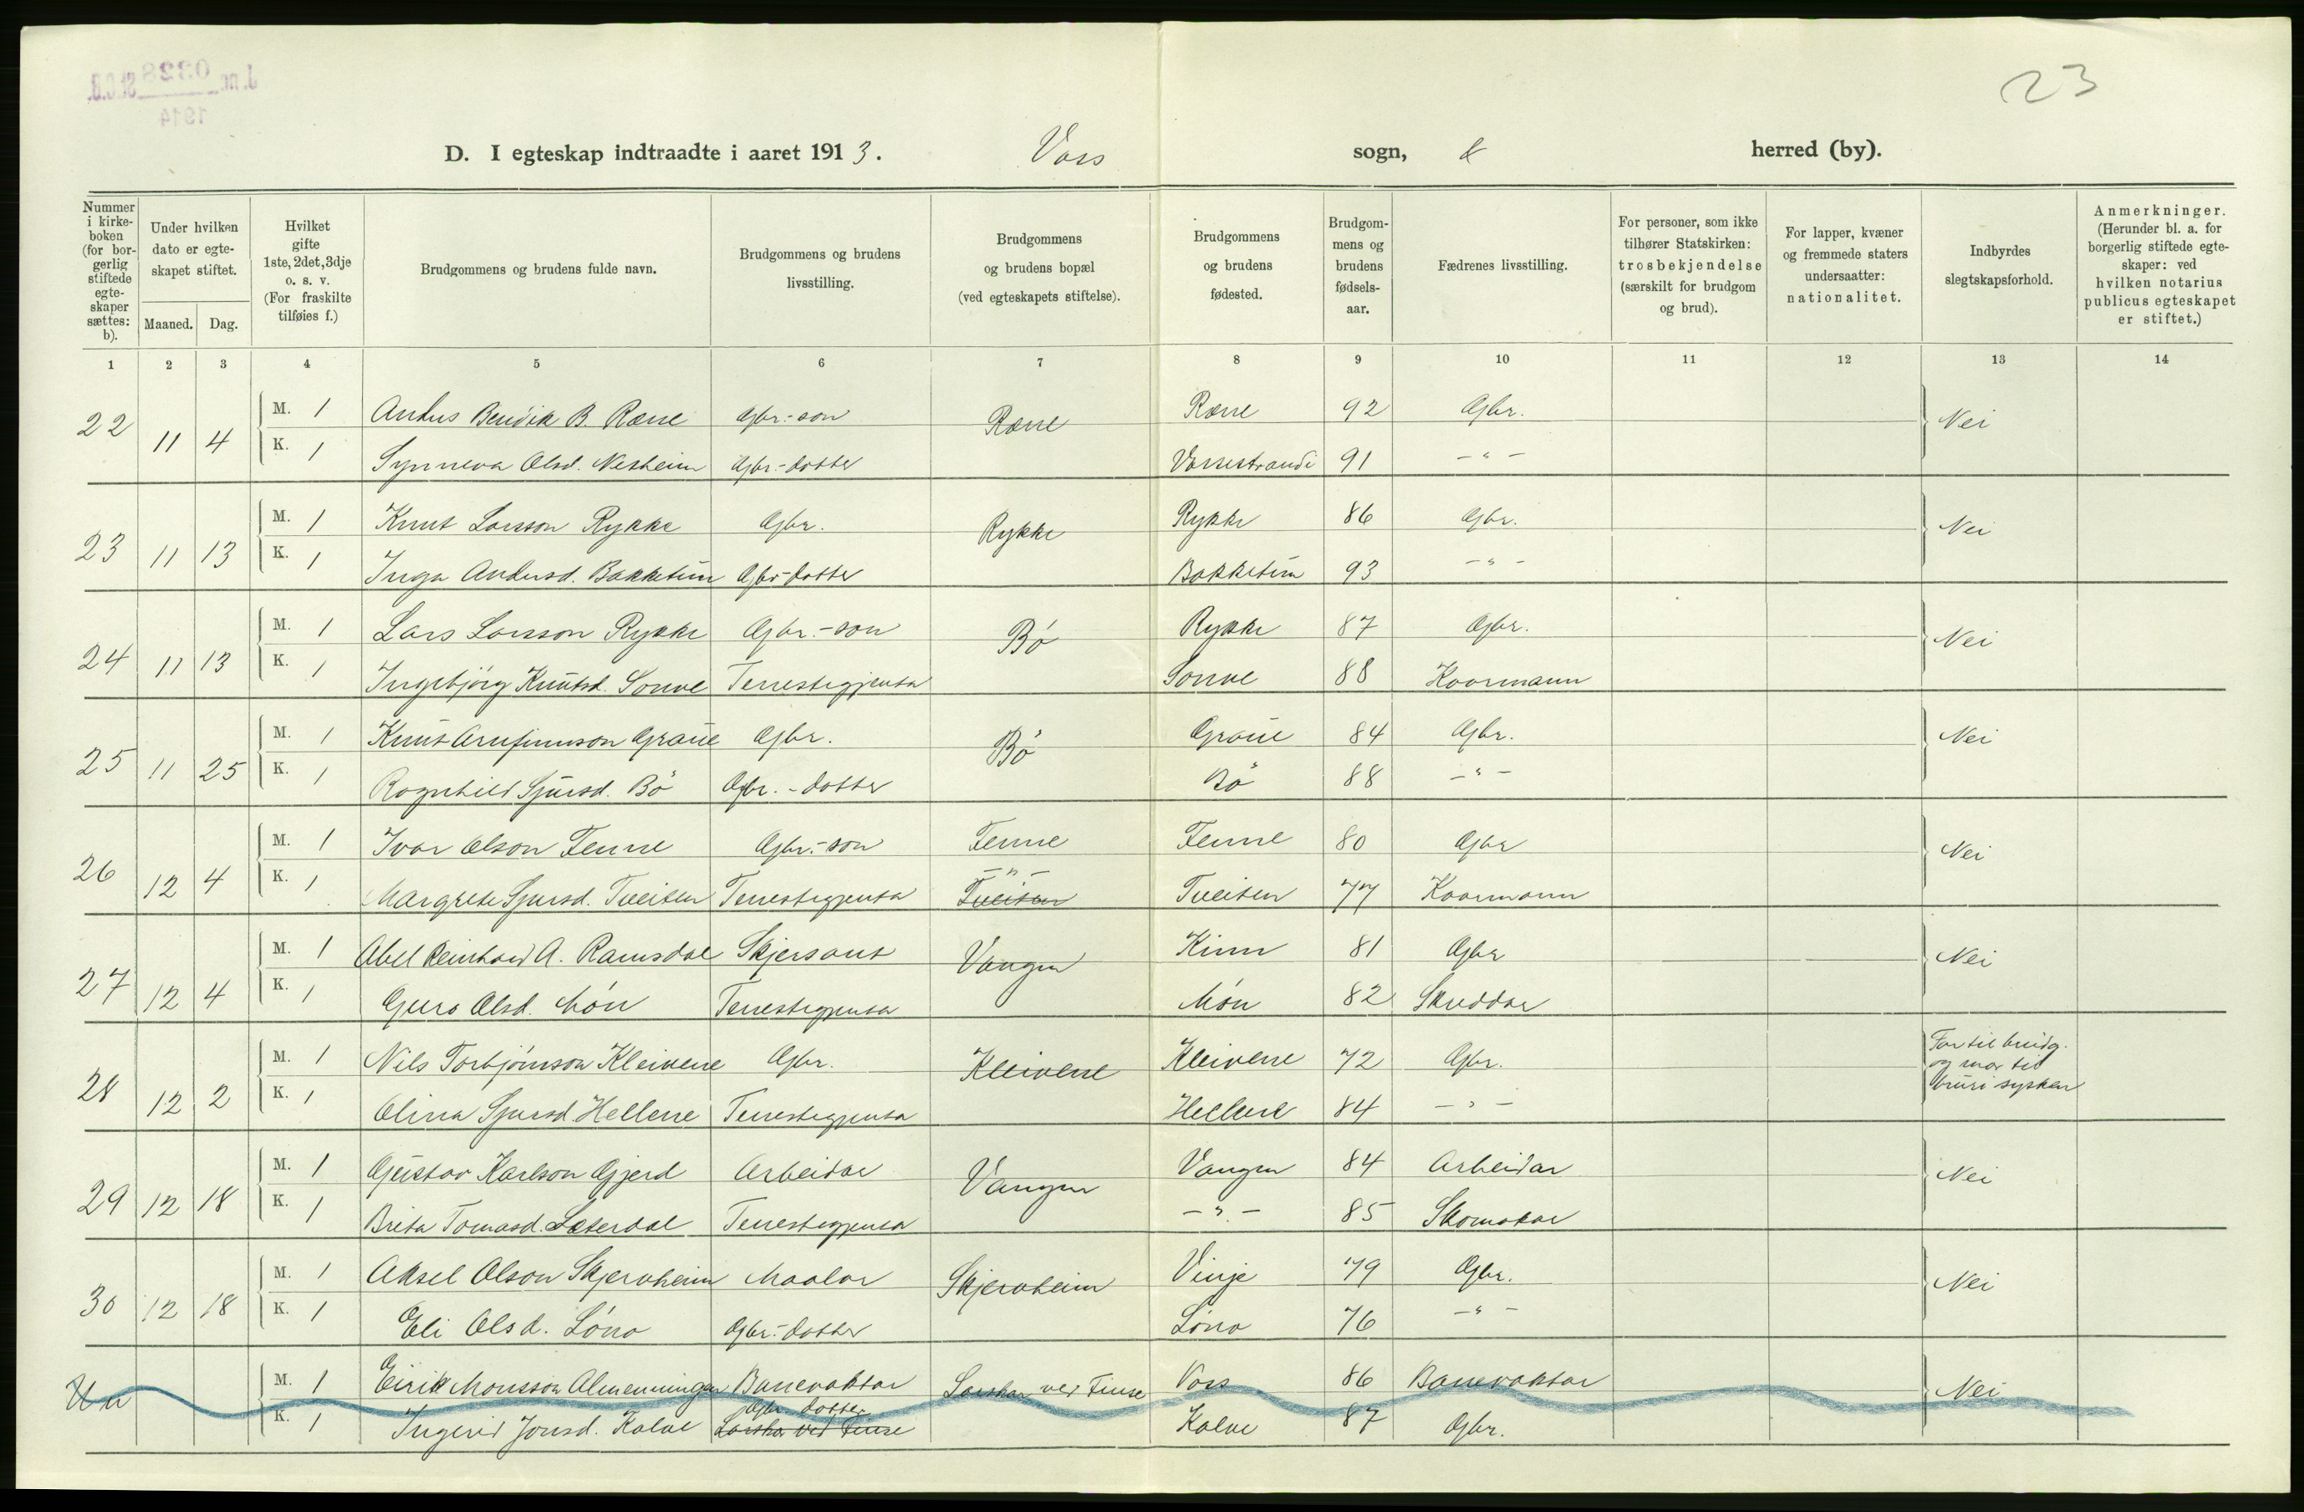 23
D. I egteskap indtraadte i aaret 1913. Voss sogn, & herred (by).
Nummer i kirkeboken (for borgerlig stiftede egteskaper sættes: b).
Under hvilken dato er egteskapet stiftet.
Maaned. Dag.
Hvilket gifte 1ste, 2det, 3dje o. s. v. (For fraskilte tilføies f.)
Brudgommens og brudens fulde navn.
Brudgommens og brudens livsstilling.
Brudgommens og brudens bopæl (ved egteskapets stiftelse).
Brudgommens og brudens fødested.
Brudgommens og brudens fødselsaar.
Fædrenes livsstilling.
For personer, som ikke tilhører Statskirken: trosbekjendelse (særskilt for brudgom og brud).
For lapper, kvæner og fremmede staters undersaatter: nationalitet.
Indbyrdes slegtskapsforhold.
Anmerkninger. (Herunder bl. a. for borgerlig stiftede egteskaper: ved hvilken notarius publicus egteskapet er stiftet.)
1 2 3 4 5 6 7 8 9 10 11 12 13 14
22 11 4 M. 1 Anders Bendik B. Rørre Gbr.-son Rørre Rørre 92 Gbr. Nei
K. 1 Synneva Olsd. Nesheim Gbr.-dotter Vossestrandi 91 -"-
23 11 13 M. 1 Knut Larsson Rykke Gbr. Rykke Rykke 86 Gbr. Nei
K. 1 Inga Andersd. Bakketun Gbr-dotter Bakketun 93 -"-
24 11 13 M. 1 Lars Larsson Rykke Gbr.-son Bø Rykke 87 Gbr. Nei
K. 1 Ingebjörg Knutsd. Sonve Tenestegjenta Sonve 88 Kaarmann
25 11 25 M. 1 Knut Arnfinnson Graue Gbr. Bø Graue 84 Gbr. Nei
K. 1 Ragnhild Sjursd. Bø Gbr.-dotter Bø 88 -"-
26 12 4 M. 1 Ivar Olson Fenne Gbr.-son Fenne Fenne 80 Gbr Nei
K. 1 Margrete Sjursd. Tveiten Tenestegjenta -"- Tveiten Tveiten 77 Kaarmann
27 12 4 M. 1 Abel Reinhard A. Ramsdal Skjersant Vangen Kinn 81 Gbr Nei
K. 1 Guro Olsd. Møn Tenestegjenta Møn 82 Skreddar
28 12 2 M. 1 Nils Torbjørnson Kleivene Gbr. Kleivene Kleivene 72 Gbr. Far til brudg. og mor til bruri sysken
K. 1 Olina Sjursd. Hellene Tenestegjenta Hellene 84 -"-
29 12 18 M. 1 Gustav Karlson Gjerd Arbeidar Vangen Vangen 84 Arbeidar Nei
K. 1 Brita Tomasd. Sæterdal Tenestegjenta -"- 85 Skomakar
30 12 18 M. 1 Aksel Olson Skjervheim Maalar Skjervheim Vinje 79 Gbr. Nei
K. 1 Eli Olsd. Løno Gbr.-dotter Løno 76 -"-
M. 1 Eirik Monsson Almenningen Banevaktar ved Finse Voss 86 Banevaktar Nei
K. 1 Ingerid Jonsd. Kolve Gbr. dotter ved Finse Kolve 87 Gbr.